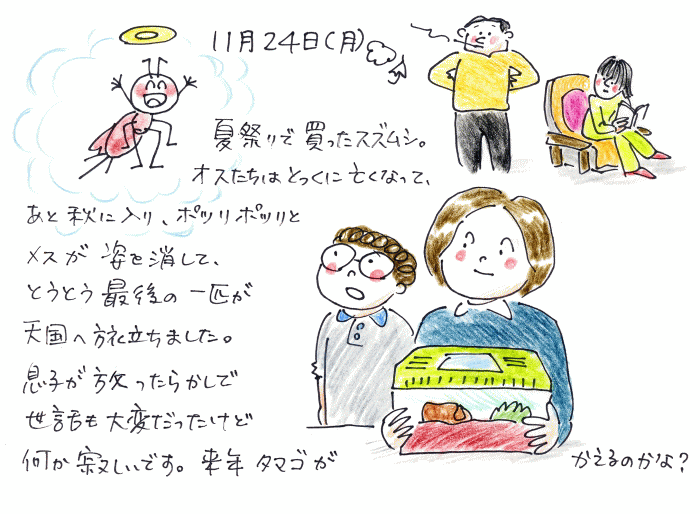 11月24日(月)
夏祭りで買ったスズムシ。
オスたちはとっくに亡くなって、
あと秋に入り、ポツリポツリと
メスが姿を消して、
とうとう最後の一匹が
天国へ旅立ちました。
息子が放ったらかしで
世話も大変だったけど
何か寂しいです。来年タマゴが かえるのかな?